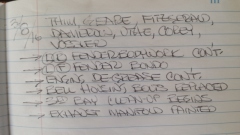 THIM, GEADE, FITZGERALD,
DAVIDSON, UTKE, COREY,
VOSSLER
FENDER BODYWORK CONT.
FENDER BONDO
ENGINE DEGREASE CONT.
BELL HOUSING BOLTS REPLACED
BAY CLEAN-UP BEGINS
EXHAUST MANIFOLD PAINTED